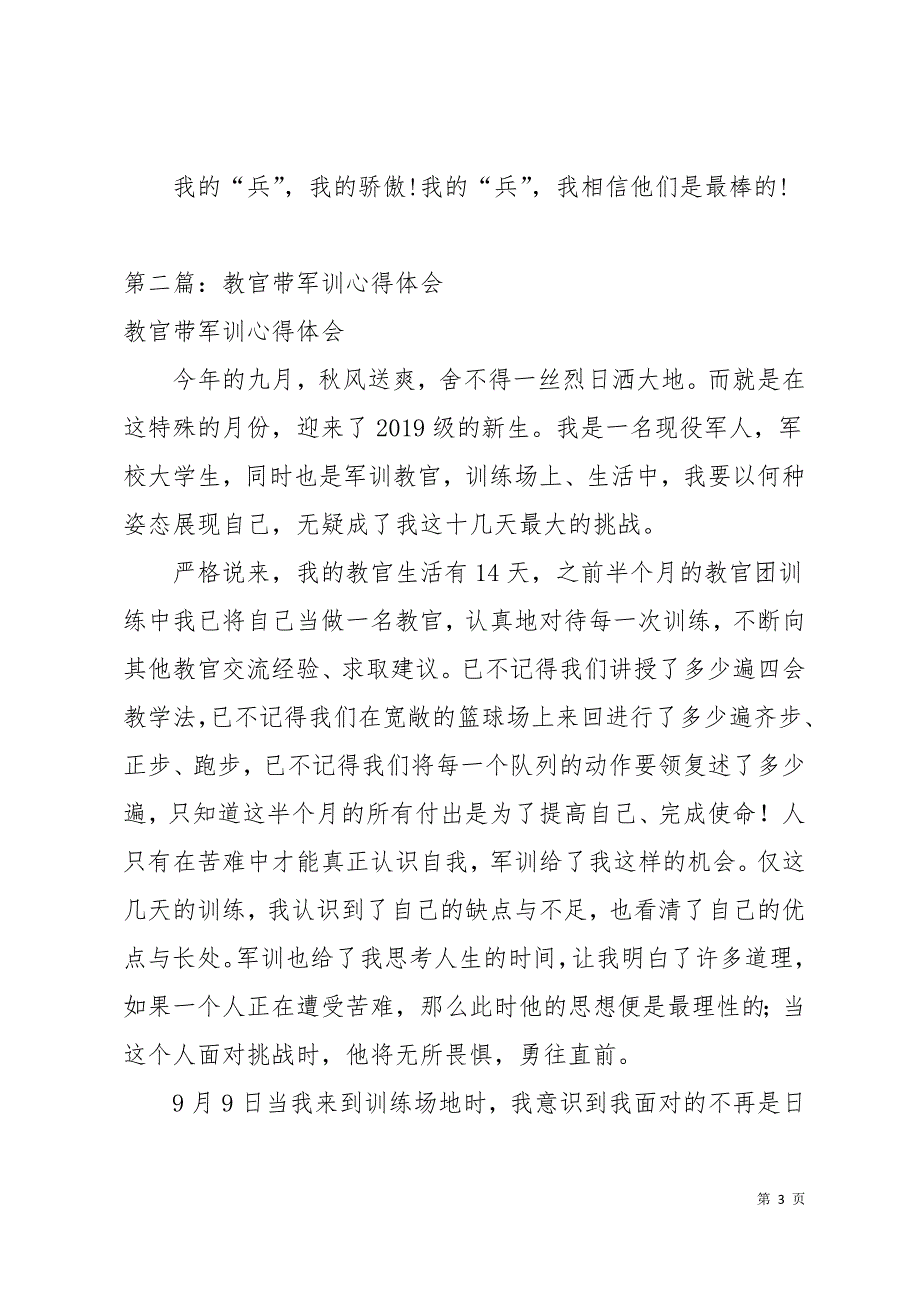 我的“兵”，我的骄傲!我的“兵”，我相信他们是最棒的!
第二篇：教官带军训心得体会
教官带军训心得体会
今年的九月，秋风送爽，舍不得一丝烈日洒大地。而就是在
这特殊的月份，迎来了 2019 级的新生。我是一名现役军人，军
校大学生，同时也是军训教官，训练场上、生活中，我要以何种
姿态展现自己，无疑成了我这十几天最大的挑战。
严格说来，我的教官生活有 14 天，之前半个月的教官团训
练中我已将自己当做一名教官，认真地对待每一次训练，不断向
其他教官交流经验、求取建议。已不记得我们讲授了多少遍四会
教学法，已不记得我们在宽敞的篮球场上来回进行了多少遍齐步、
正步、跑步，已不记得我们将每一个队列的动作要领复述了多少
遍，只知道这半个月的所有付出是为了提高自己、完成使命！人
只有在苦难中才能真正认识自我，军训给了我这样的机会。仅这
几天的训练，我认识到了自己的缺点与不足，也看清了自己的优
点与长处。军训也给了我思考人生的时间，让我明白了许多道理，
如果一个人正在遭受苦难，那么此时他的思想便是最理性的；当
这个人面对挑战时，他将无所畏惧，勇往直前。
9 月 9 日当我来到训练场地时，我意识到我面对的不再是日
第 3 页